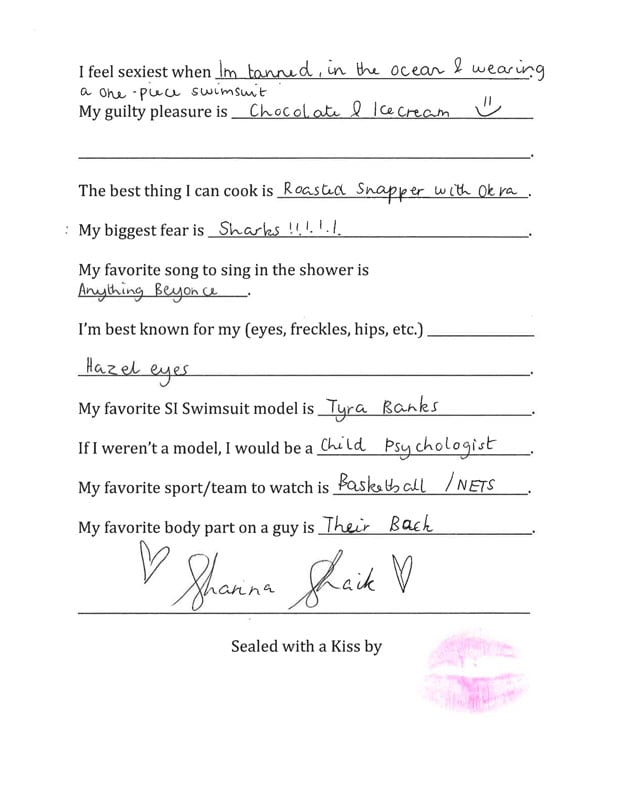 I feel sexiest when Im tanned, in the ocean & wearing
a one-piece swimsuit
My guilty pleasure is Chocolate & Icecream
.
The best thing I can cook is Roasted Snapper with Okra.
: My biggest fear is Sharks !!!!!!.
My favorite song to sing in the shower is
Anything Beyonce.
I'm best known for my (eyes, freckles, hips, etc.)
Hazel eyes.
My favorite SI Swimsuit model is Tyra Banks.
If I weren't a model, I would be a Child Psychologist.
My favorite sport/team to watch is Basketball /NETS.
My favorite body part on a guy is Their Back.
Shanina Shaik
Sealed with a Kiss by